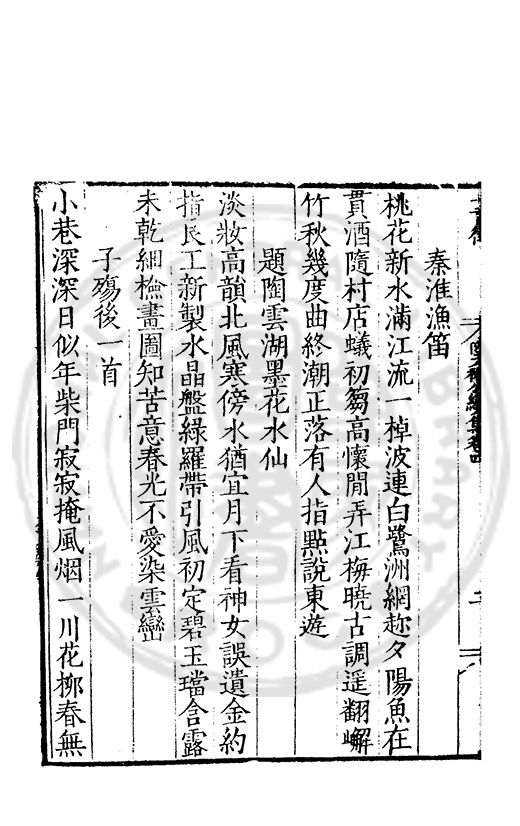 秦淮漁笛
桃花新水滿江流一棹波連白鷺洲網趂夕陽魚在
貫酒隨村店蟻初篘高懷閒弄江梅曉古調遥翻嶰
竹秋幾度曲終潮正落有人指點說東遊
題陶雲湖墨花水仙
淡妝高韻北風寒傍水猶宜月下看神女誤遺金約
指良工新製水晶盤綠羅帶引風初定碧玉璫含露
未乾細檢畫圖知苦意春光不愛染雲巒
子殤後一首
小巷深深日似年柴門寂寂掩風烟一川花柳春無